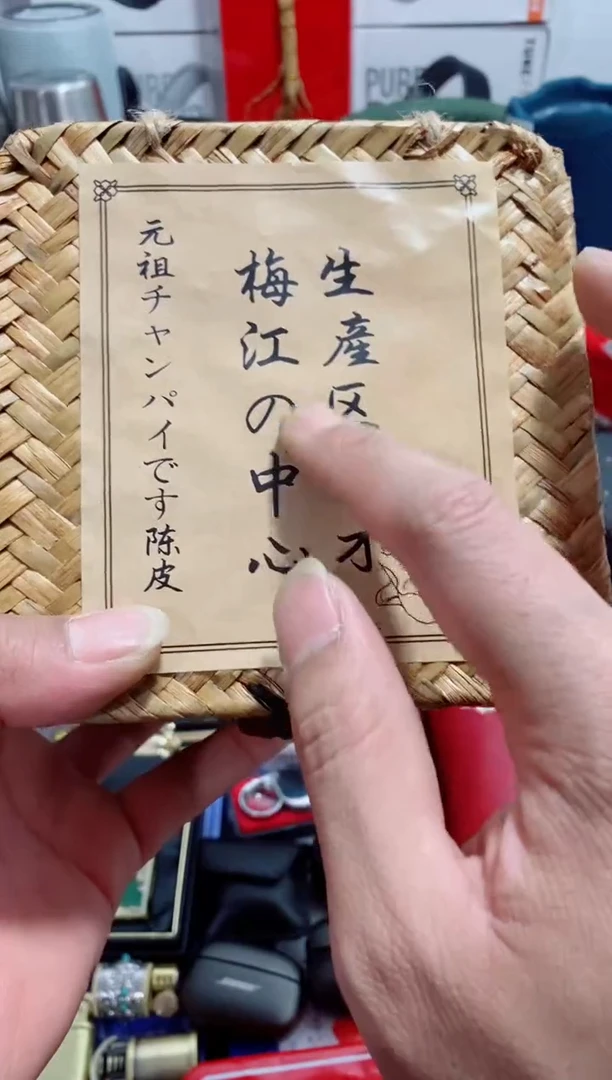 生産区
才
梅江の中心
元祖チャンパイです陈皮
PURE
BOSE